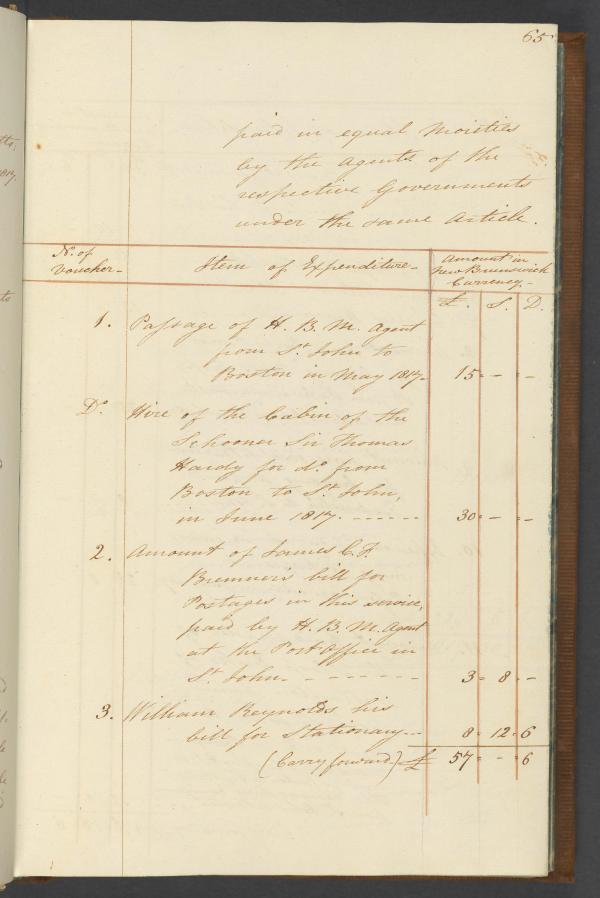 65
paid in equal Moieties
by the Agents of the
respective Governments
under the same Article.
No. of
Voucher-
Item of Expenditure-
Amount in
New Brunswick
Currency.-
£. S. D.
1. Passage of H. B. M. Agent
from St. John to
Boston in May 1817- 15 - -
Do. Hire of the Cabin of the
Schooner Sir Thomas
Hardy for do. from
Boston to St. John,
in June 1817. ------ 30 - -
2. Amount of James C. F.
Bremner's bill for
Postages in this service,
paid by H. B. M. Agent
at the Post Office in
St. John- ------- 3 8 -
3. William Reynolds his
bill for Stationary--- 8 12 6
(Carry forward) £ 57 - 6